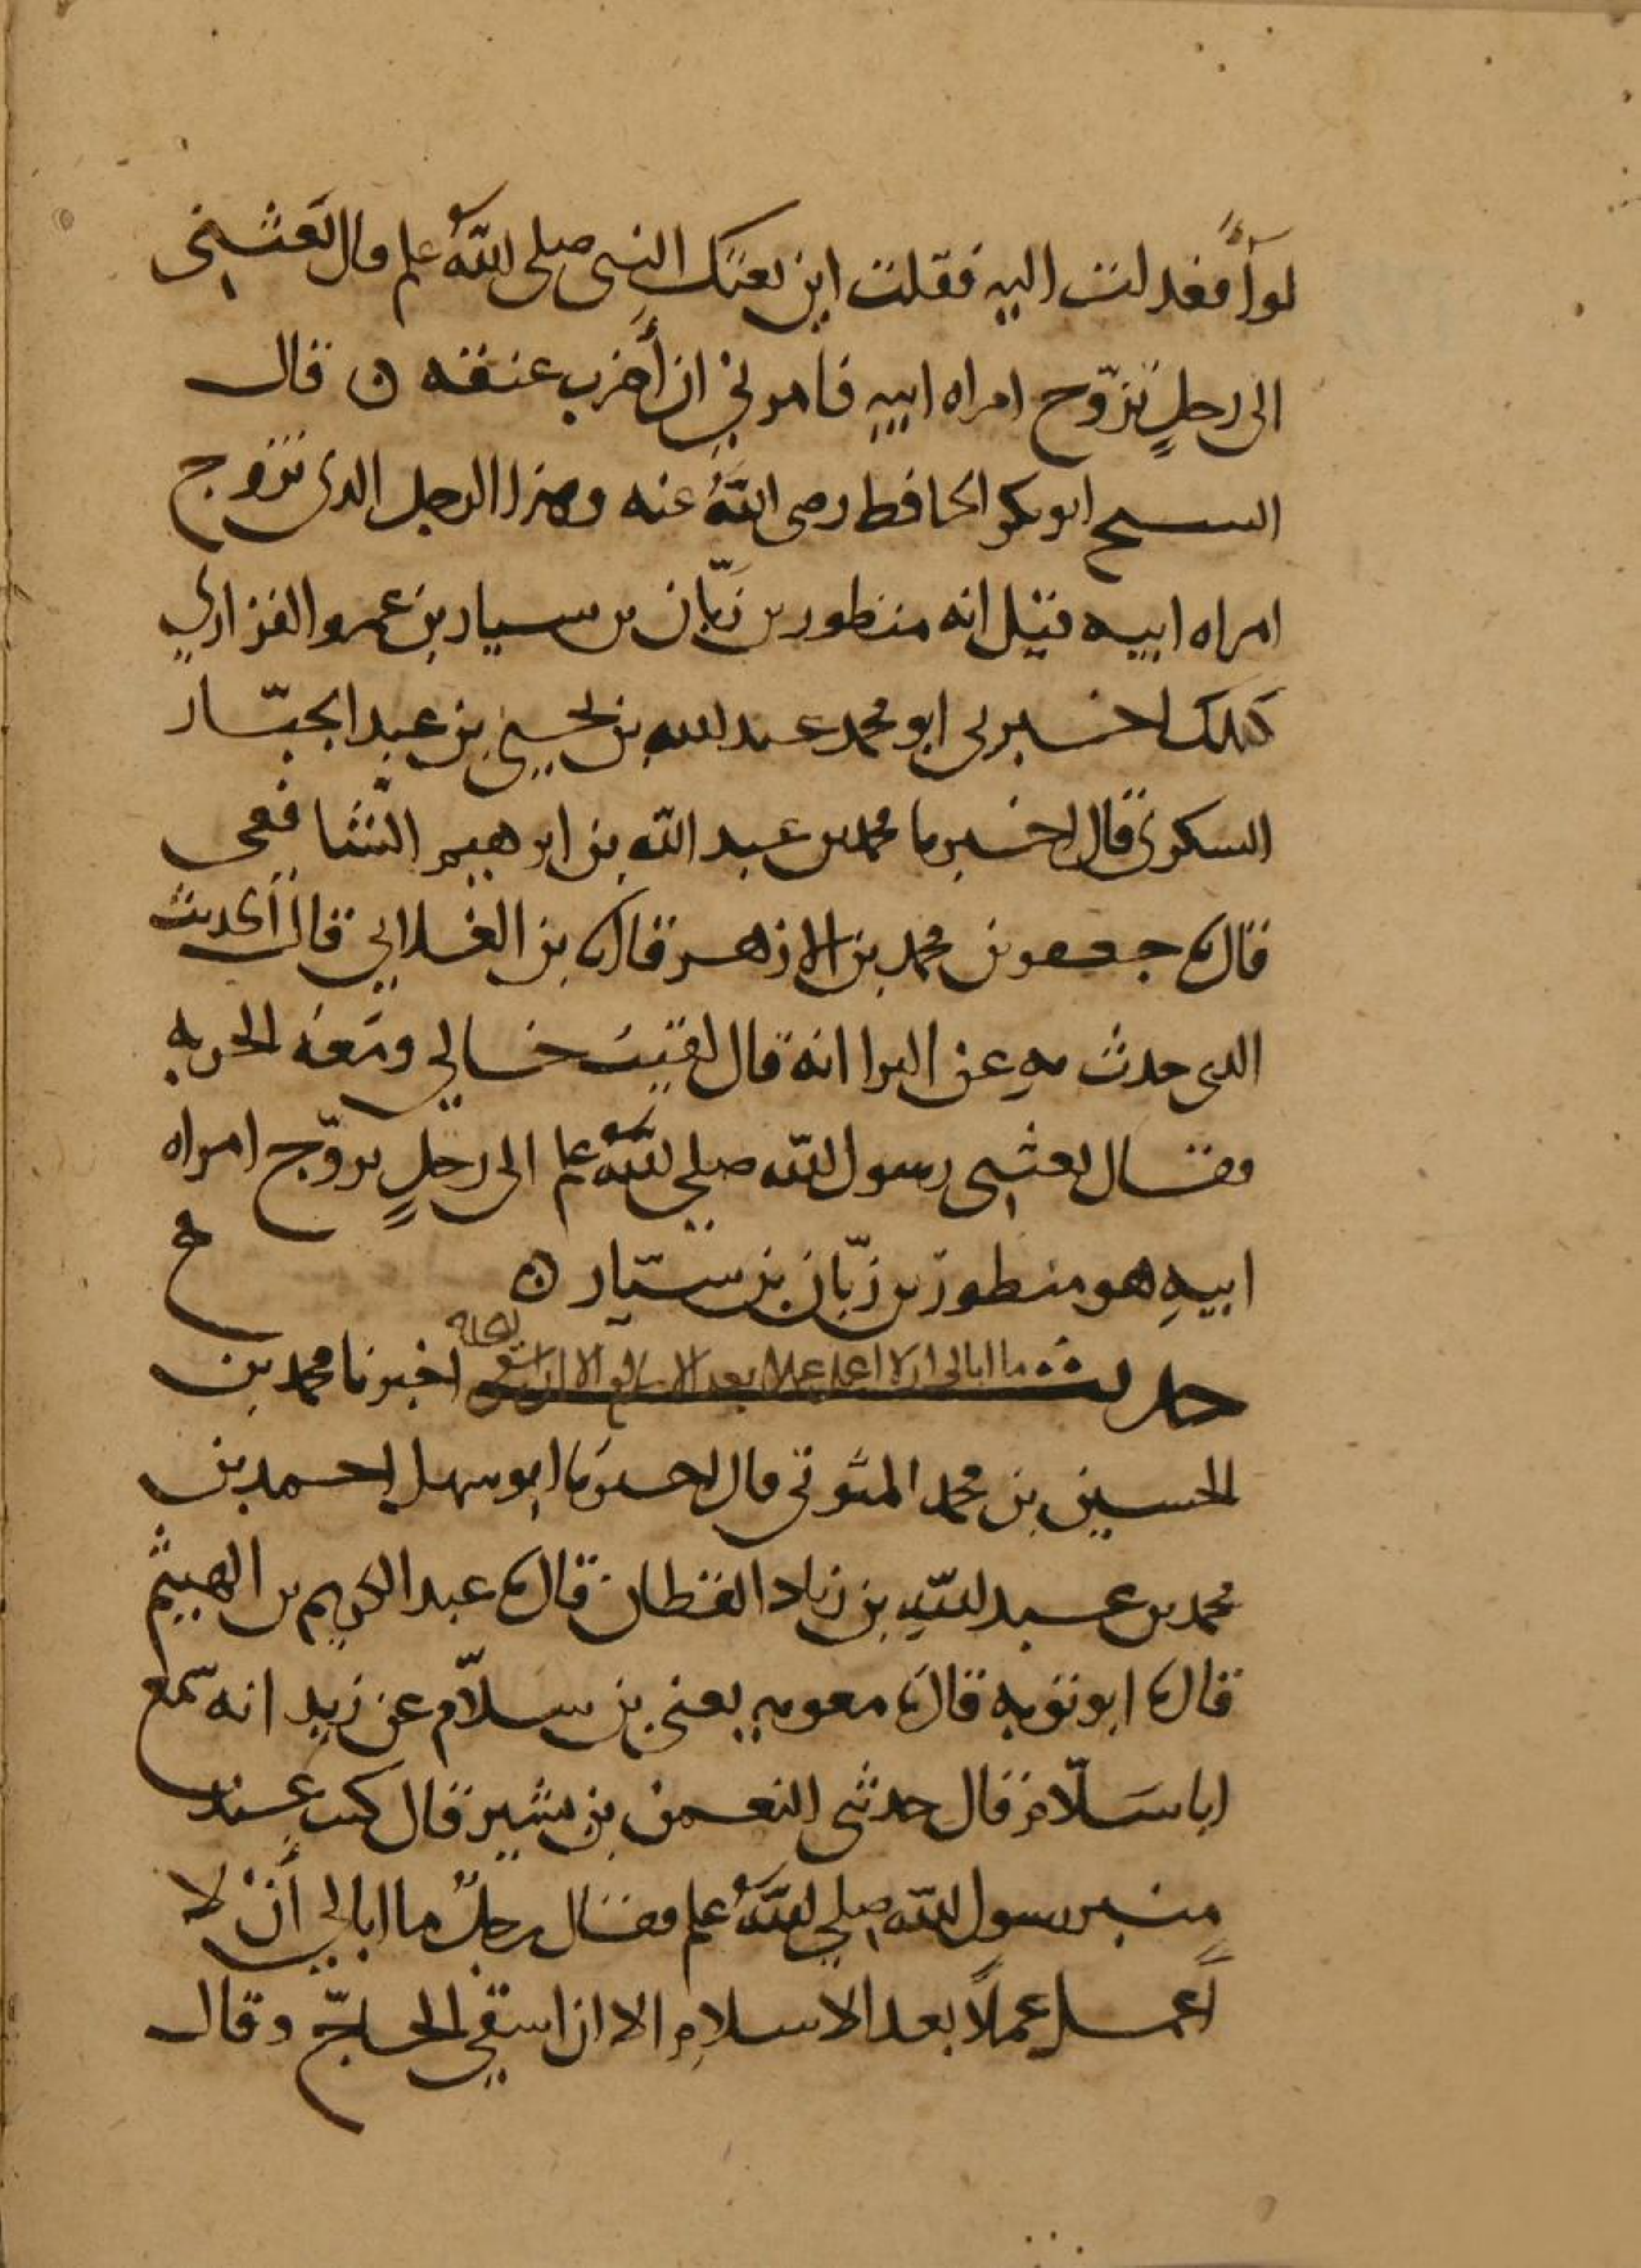 لوآً فعدلت اليه فقلت اين بعثك النبي صلى الله علم قال بعثني
الى رجلٍ تزوّج امراه ابيهِ فامرنيْ ان أَضرب عنقه ن قال
الشيخ ابو بكر الحافظ رضى اللهُ عنه وهذا الرجل الذى تزوج
امراه ابيه قيل انه منظور بن زبّان بن سيار بن عمرو الفزاري
كذلك اخبرنى ابو محمد عبد الله بن يحيى بن عبد الجبّار
السكرى قال اخبرنا محمد بن عبد الله بن ابرهيم الشّافعى
قال ثا جعفر بن محمد بن الازهر قال ثا بن الغلابي قال الحديث
الذى حدث بهِ عن البرا انه قال لقيت خالي ومَعَه الحربه
فقال بعثنى رسول الله صلى اللهُ علم الى رجلٍ تزوّج امراه
ابيهِ هو منظور بن زبّان بن سيّار ن
حديث ما ابالى ان لا اعمل عملا بعد الاسلام الا ان اسقي اخبرنا محمد بن
الحسين بن محمد المتوثى قال اخبرنا ابو سهل احمد بن
محمد بن عبد اللهِ بن زياد القطان قال ثا عبد الكريم بن الهيثم
قال ثا ابو توبه قال ثا معويه يعنى بن سلاّم عن زيد انه سمع
ابا سَلاّم قال حدثنى النعمن بن بشير قال كنت عِند
مِنبر رسول الله صلى اللهُ علم فقال رجلٌ ما ابالي أَنْ لا
أَعمل عملاً بعد الاسلامِ الا ان اسقي الحاجّ وقال